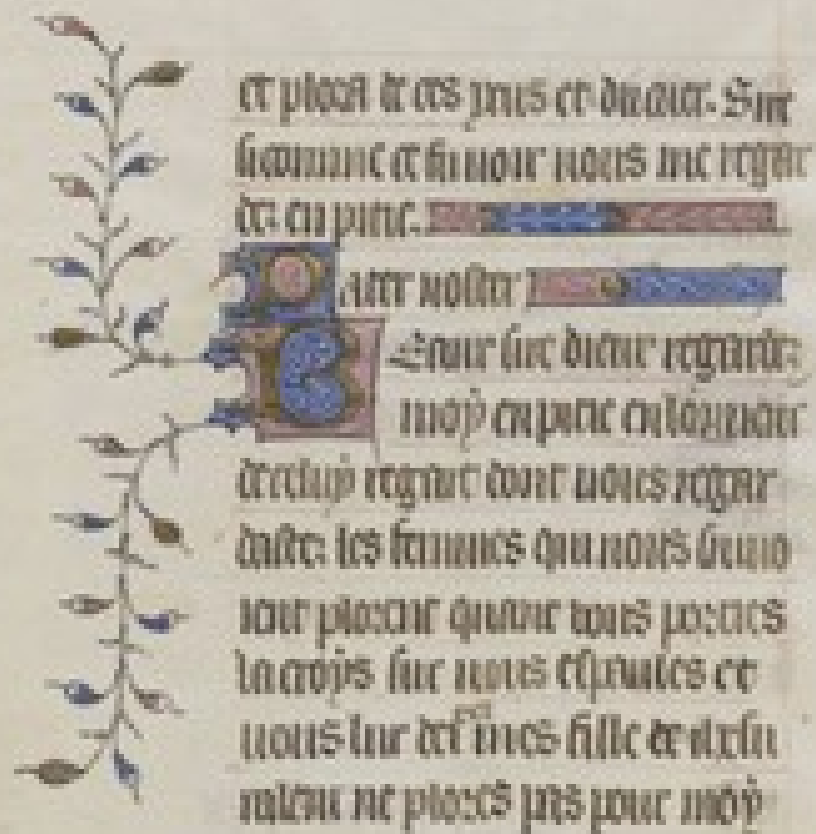 et plorast de ces yeus et du cuer. Sire
si comme ce fu voir vous me regar
dez en pitie.
Pater noster
Beaur sire dieux regardez
moy en pitie en lonneur
de celuy regart dont vous regar
dastez les femmes qui vous suivo
ient plorent quant vous porties
la croys sur vos espaules et
vous leur deistes fille de iherusa
ralem ne plores pas pour moy